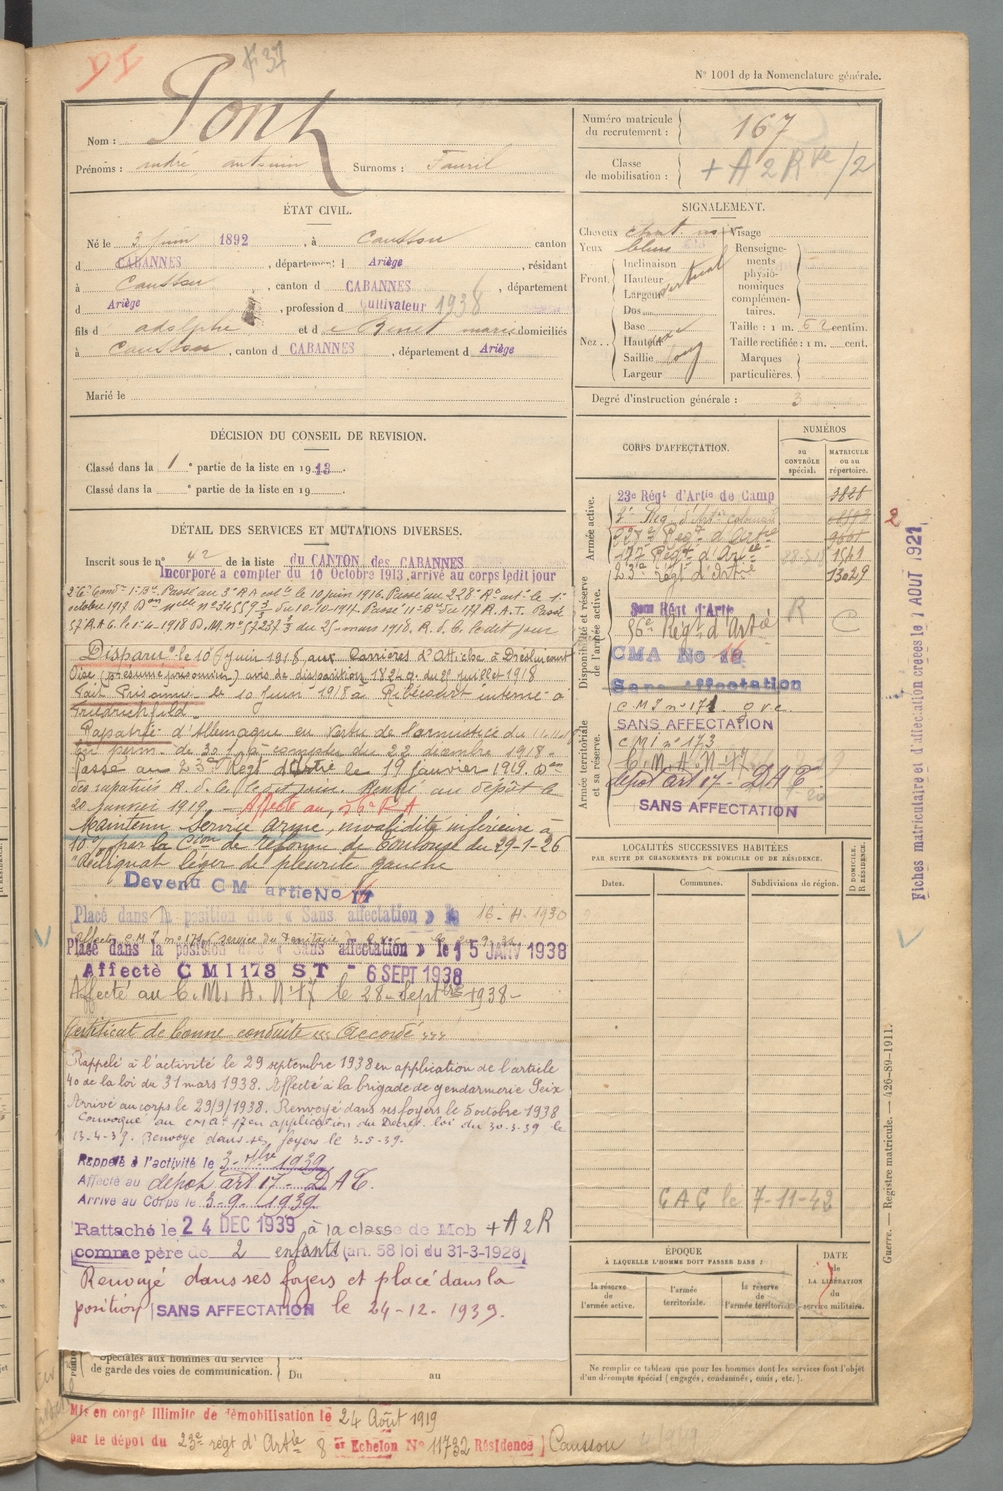 DI
N° 1001 de la Nomenclature générale.
Nom : Pont
Prénoms : andré antonin Surnoms : Fauril
Numéro matricule du recrutement : 167
Classe de mobilisation : + A 2 R ve /2
ÉTAT CIVIL.
Né le 3 juin 1892, à Caussou canton
d CABANNES, département d Ariège, résidant
à Caussou, canton d CABANNES, département
d Ariège, profession d Cultivateur 1938
fils d adolphe et d marie domiciliés
à Caussou, canton d CABANNES, département d Ariège
Marié le
SIGNALEMENT.
Cheveux chat Visage
Yeux bleus
Front. Inclinaison Hauteur Largeur vertical
Renseignements physionomiques complémentaires.
Nez .. Dos Base Hauteur Saillie Largeur
Taille : 1 m. 62 centim.
Taille rectifiée : 1 m. cent.
Marques particulières.
Degré d'instruction générale : 3
DÉCISION DU CONSEIL DE REVISION.
Classé dans la 1e partie de la liste en 1913.
Classé dans la e partie de la liste en 19
DÉTAIL DES SERVICES ET MUTATIONS DIVERSES.
Inscrit sous le n° 42 de la liste du CANTON des CABANNES
Incorporé a compter du 10 Octobre 1913, arrivé au corps ledit jour
Passé au 3e RA cole le 10 juin 1916. Passé au 228e Rt art ie le 1er
octobre 1917 Don mlle n° 34559 3/3 du 10-10-1917. Passé 11e Bie du 177 R.A.T. Passé
57 RAC. le 1-4-1918 D.M. n° 57237 1/3 du 25-mars 1918. A. d. C. le dit jour
Disparu le 10 juin 1918, aux Carrières d'Attiche à Dreslincourt
Oise (présumé prisonnier) avis de disparition 1824 a. du 21 juillet 1918
Fait Prisonnier le 10 juin 1918 à Ribécourt interné à
Friedrichfeld.
Rapatrié d'Allemagne en vertu de l'armistice du
perm. de 30 j à compter du 22 décembre 1918.
Passé au 23e Régt d'Artie le 19 janvier 1919. Don
des rapatriés A. d. C. le dit jour. Rentré au dépôt le
20 janvier 1919. Affecté au 56e R A
Maintenu Service armé, invalidité inférieure à
10 % par la Com de réforme de Toulouse du 29-1-26
"Reliquat léger de pleurite gauche
Devenu CM artie No 17
Placé dans la position dite « Sans affectation » le 16-4-1930
Affecté C M I n° 171 (Service du Territoire)
Placé dans la position dite « Sans affectation » le 15 JANV 1938
Affecté C M I 173 S T - 6 SEPT 1938
Affecté au C. M. A. N° 17 le 28 - Septbre 1938 -
Certificat de bonne conduite "" Accordé ""
Rappelé à l'activité le 29 septembre 1938 en application de l'article
40 de la loi du 31 mars 1938. Affecté à la brigade de gendarmerie Seix
Arrivé au corps le 29/9/1938. Renvoyé dans ses foyers le 5 octobre 1938
Convoqué au cma 17 en application du Décret loi du 30-3-39 le
13-4-39. Renvoyé dans ses foyers le 3-5-39.
Rappelé à l'activité le 3 - 7bre 1939
Affecté au depot art 17 - D A T.
Arrivé au Corps le 3-9-1939
Rattaché le 24 DEC 1939 à la classe de Mob + A 2 R
comme père de 2 enfants (art. 58 loi du 31-3-1928)
Renvoyé dans ses foyers et placé dans la
position SANS AFFECTATION le 24-12-1939.
Spéciales aux hommes du service
de garde des voies de communication.
Du au
Mis en congé illimité de démobilisation le 24 Août 1919
par le dépôt du 23e régt d'Artie 8 e Echelon No 11732 Résidence Caussou
CORPS D'AFFECTATION.
NUMÉROS
au CONTRÔLE spécial.
MATRICULE ou au répertoire.
Armée active.
23e Régt d'Artie de Camp 3828
3e Régt d'Artie coloniale
228e Régt d'Artie
177 Régt d'Artie 1541
23e Régt d'Artie 13029
Disponibilité et réserve de l'armée active.
56e Régt d'Artie R C
CMA No
Sans affectation
Armée territoriale et sa réserve.
C M I n° 171
SANS AFFECTATION
C M I n° 173
C. M. A. N° 17
depot art 17 - D A T
SANS AFFECTATION
2
Fiches matriculaire et d'affectation créées le 1 AOUT 1921
LOCALITÉS SUCCESSIVES HABITÉES
PAR SUITE DE CHANGEMENTS DE DOMICILE OU DE RÉSIDENCE.
Dates.
Communes.
Subdivisions de région.
D DOMICILE.
R RÉSIDENCE.
le 7-11-42
ÉPOQUE
À LAQUELLE L'HOMME DOIT PASSER DANS :
la réserve de l'armée active.
l'armée territoriale.
la réserve de l'armée territoriale.
DATE de LA LIBÉRATION du service militaire.
Ne remplir ce tableau que pour les hommes dont les services font l'objet
d'un décompte spécial (engagés, condamnés, omis, etc.).
Guerre. — Registre matricule. — 426-89-1911.